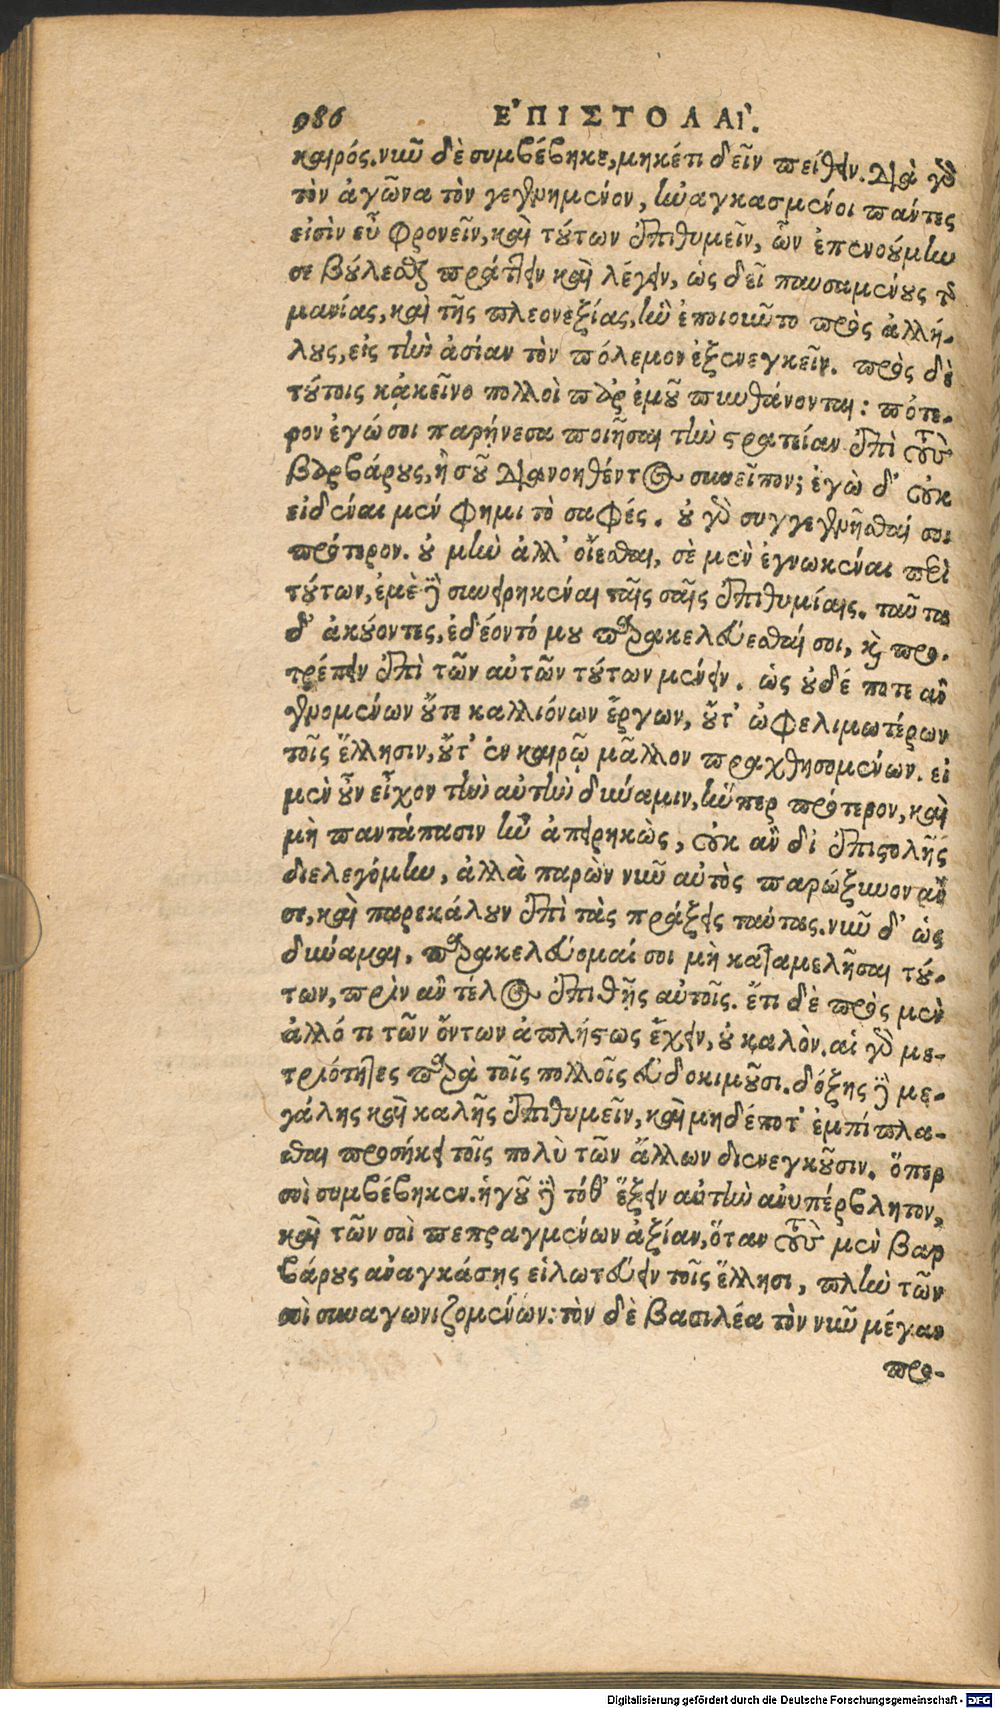 986 ΕΠΙΣΤΟΛΑΙ.
καιρός. νῦν δὲ συμβέβηκε, μηκέτι δεῖν πείθειν. διὰ γὸ
τὸν ἀγῶνα τὸν γεγενημένον, ἠναγκασμένοι πάντες
εἰσὶν εὖ φρονεῖν, καὶ τούτων ἐπιθυμεῖν, ὧν ἐπενοοῦμίω
σε βούλεσθαι πράττειν καὶ λέγειν, ὡς δεῖ παυσαμένους τ
μανίας, καὶ τῆς πλεονεξίας, ἣν ἐποιοῦντο πρὸς ἀλλή-
λους, εἰς τὴν ἀσίαν τὸν πόλεμον ἐξενεγκεῖν. πρὸς δὲ
τούτοις κἀκεῖνο πολλοὶ παρ' ἐμοῦ πυνθάνονται: πότε-
ρον ἐγώ σοι παρῄνεσα ποιῆσαι τὴν στρατείαν ἐπὶ τοὺς
βαρβάρους, ἢ σοῦ διανοηθέντος συνεῖπον; ἐγὼ δ' οὐκ
εἰδέναι μέν φημι τὸ σαφές. οὐ γὸ συγγεγενῆσθαί σοι
πρότερον. οὐ μὴν ἀλλ' οἴεσθαι, σὲ μὲν ἐγνωκέναι περὶ
τούτων, ἐμὲ δὲ συνειρηκέναι ταῖς σαῖς ἐπιθυμίαις. ταῦτα
δ' ἀκούοντες, ἐδέοντό μου παρακελεύεσθαί σοι, καὶ προ-
τρέπειν ἐπὶ τῶν αὐτῶν τούτων μένειν. ὡς οὐδέ ποτε ἂν
γενομένων οὔτε καλλιόνων ἔργων, οὔτ' ὠφελιμωτέρων
τοῖς ἕλλησιν, οὔτ' ἐν καιρῷ μᾶλλον πραχθησομένων. εἰ
μὲν οὖν εἶχον τὴν αὐτὴν δύναμιν, ἥνπερ πρότερον, καὶ
μὴ παντάπασιν ἦν ἀπειρηκὼς, οὐκ ἂν δι' ἐπιστολῆς
διελεγόμην, ἀλλὰ παρὼν νῦν αὐτὸς παρώξυνον ἄν
σε, καὶ παρεκάλουν ἐπὶ τὰς πράξεις ταύτας. νῦν δ' ὡς
δύναμαι, παρακελεύομαί σοι μὴ καταμελῆσαι τού-
των, πρὶν ἂν τέλος ἐπιθῇς αὐτοῖς. ἔτι δὲ πρὸς μὲν
ἄλλό τι τῶν ὄντων ἀπλήστως ἔχειν, οὐ καλὸν. αἱ γὸ με-
τριότητες παρὰ τοῖς πολλοῖς εὐδοκιμοῦσι. δόξης δὲ με-
γάλης καὶ καλῆς ἐπιθυμεῖν, καὶ μηδέποτ' ἐμπίπλα-
σθαι προσήκει τοῖς πολὺ τῶν ἄλλων διενεγκοῦσιν. ὅπερ
σοὶ συμβέβηκεν. ἡγοῦ δὲ τόθ' ἕξειν αὐτὴν ἀνυπέρβλητον,
καὶ τῶν σοὶ πεπραγμένων ἀξίαν, ὅταν τοὺς μὲν βαρ
βάρους ἀναγκάσῃς εἱλωτεύειν τοῖς ἕλλησι, πλὴν τῶν
σοὶ συναγωνιζομένων: τὸν δὲ βασιλέα τὸν νῦν μέγαν
προ-
Digitalisierung gefördert durch die Deutsche Forschungsgemeinschaft - DFG